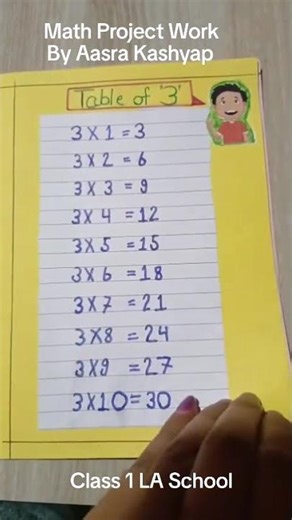 Math Project Work
By Aasra Kashyap
Table of '3'
3 X 1 = 3
3 X 2 = 6
3 X 3 = 9
3 X 4 = 12
3 X 5 = 15
3 X 6 = 18
3 X 7 = 21
3 X 8 = 24
3 X 9 = 27
3 X 10 = 30
Class 1 LA School